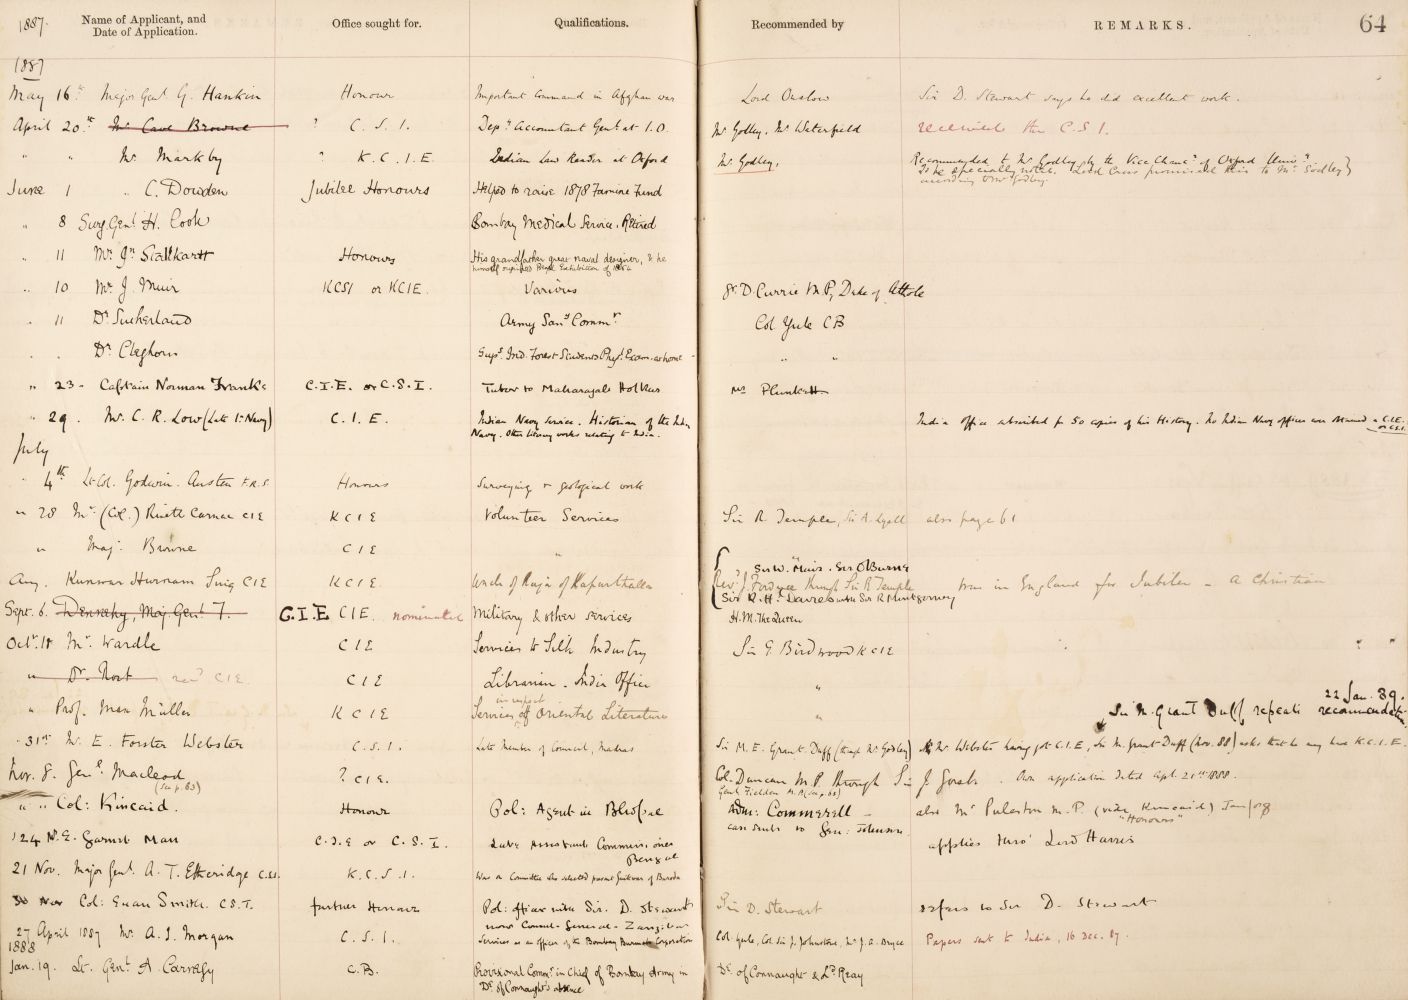 1887. Name of Applicant, and Date of Application. Office sought for. Qualifications. Recommended by REMARKS. 64
1887
May 16th Major Genl G. Hankin Honour Important command in Afghan war Lord Onslow Sir D. Stewart says he did excellent work.
April 20th Mr Cave Browne ? C.S.I. Depy Accountant Genl at I.O. Mr Godley. Mr Waterfield received the C.S.I.
" " Mr Markby ? K.C.I.E. Indian Law Reader at Oxford Mr Godley. Recommended to Mr Godley by the Vice Chancr of Oxford Univ.
To be specially noted. Lord Cross promised this to Mr Godley
according to Mr Godley.
June 1 " C. Dowden Jubilee Honours Helped to raise 1878 Famine Fund
" 8 Surg. Genl H. Cook Bombay Medical Service. Retired
" 11 Mr Jn Stalkartt Honours His grandfather great naval designer, & he
himself Exhibition of
" 10 Mr J. Muir KCSI or KCIE. Various Sr D. Currie M.P, Duke of Athole
" 11 Dr Sutherland Army Sany Commr Col Yule CB
" " Dr Cleghorn Supt Ind. Forest Students Exam. at home " "
" 23 - Captain Norman Franks C.I.E. or C.S.I. Tutor to Maharajah Holkar Mr Plunkett
" 29. Mr. C. R. Low (Late In Navy) C.I.E. Indian Navy Service. Historian of the Indn
Navy. Other literary works relating to India. India Office subscribed for 50 copies of his History. No Indian Navy officer was a C.I.E.
or C.S.I.
July
" 4th Lt Col. Godwin-Austen F.R.S. Honours Surveying & geological work
" 28 Mr (Col.) Rivett Carnac CIE KCIE Volunteer Services Sir R. Temple, Sir A. Lyall also page 61
" Maj. Browne CIE " "
Aug. Kunwar Hurnam Sing CIE KCIE. Uncle of Raja of Kapurthalla Sir W. Muir. Sir O. Burne
Revd J. Fordyce through Sir R Temple
Sir R. H. Davies with Sir R Montgomery was in England for Jubilee - A Christian
Sept. 6. Dennehy, Maj. Genl T. C.I.E CIE. nominated Military & other services H.M. The Queen
Octr. 18 Mr. Wardle CIE Services to Silk Industry Sir G Birdwood KCIE " "
" Dr. Rost recd C.I.E. CIE Librarian - India Office "
" Prof. Max Müller KCIE Services in respect of Oriental Literature " 22 Jan. 89.
Sir M. Grant Duff repeats recommendation
" 31st Mr. E. Forster Webster C.S.I. Late Member of Council, Madras Sir M. E. Grant Duff (thro' Mr Godley) Mr Webster having got C.I.E, Sir M. Grant Duff (Nov. 88) asks that he may have K.C.I.E.
Nov. 8. Genl Macleod
(See p. 63) ? CIE. Col. Duncan M.P. through Sir J. Gorst.
Genl Fielden M.P. (See p. 63) Own application dated Apl 21st 1888.
" " Col: Kincaid. Honour Pol: Agent in Bhopal Adm: Commerell - also Mr Puleston M.P. (vide Kincaid) Jan/88
"Honours"
24 N.E. Garnit Man C.I.E or C.S.I. Late Assistant Commissioner
Bengal can send to Gen: Johnson. applies thro' Lord Harris
21 Nov. Major Genl. A. T. Etheridge C.S.I. K.C.S.I. Was on Committee who selected present Guikwar of Baroda
30 Nov Col: Euan Smith. C.S.I. further Honour Pol: officer with Sir. D. Stewart
now Consul-General - Zanzibar Sir D. Stewart refers to Sir D. Stewart
27 April 1887 Mr. A. J. Morgan C.S.I. Services as an officer of the Bombay Burmah Corporation Col Yule, Col Sir J. Johnstone, Mr J. A. Bryce Papers sent to India, 16 Dec. 87.
1888
Jan. 19. Lt. Genl A Carnegy C.B. Provisional Commr in Chief of Bombay Army in
De of Connaught's absence De of Connaught & Ld Reay